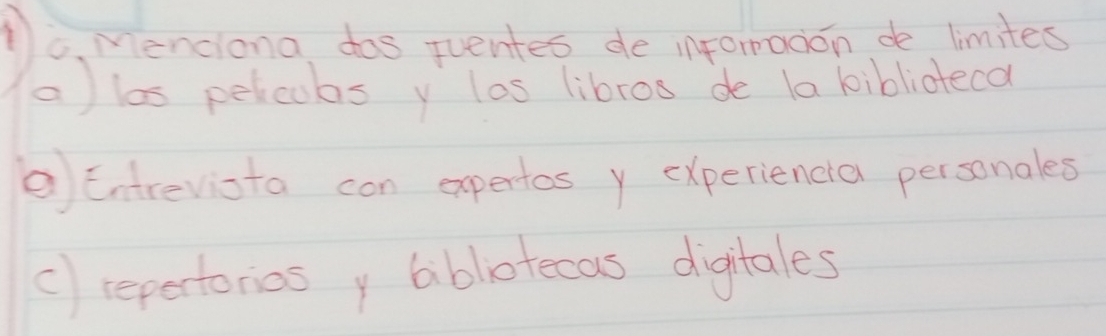 1) ¿, Menciona dos fuentes de información de limites
a) las peliculas y los libros de la biblioteca
b) Entrevista con expertos y experiencia personales
c) repertorios y bibliotecas digitales